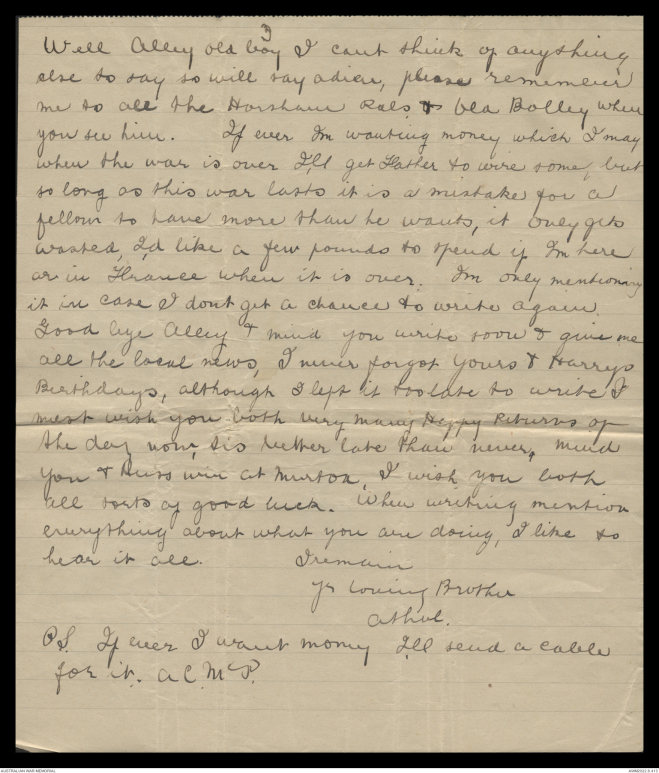 3
Well Alley old boy I cant think of anything
else to say so will say adieu, please remember
me to all the Horsham Rels & Old Bolley when
you see him. If ever Im wanting money which I may
when the war is over I'll get Father to wire some, but
so long as this war lasts it is a mistake for a
fellow to have more than he wants, it only gets
wasted, I'd like a few pounds to spend if Im here
or in France when it is over. Im only mentioning
it in case I dont get a chance to write again.
Good bye Alley & mind you write soon & give me
all the local news, I never forgot Yours & Harrys
Birthdays, although I left it too late to write I
must wish you both very many Happy Returns of
the day now, tis better late than never, mind
you & win at Murtoa, I wish you both
all sorts of good luck. When writing mention
everything about what you are doing, I like to
hear it all. I remain
Yr loving Brother
Athol.
P.S. If ever I want money I'll send a cable
for it. A.C. McP.
AUSTRALIAN WAR MEMORIAL